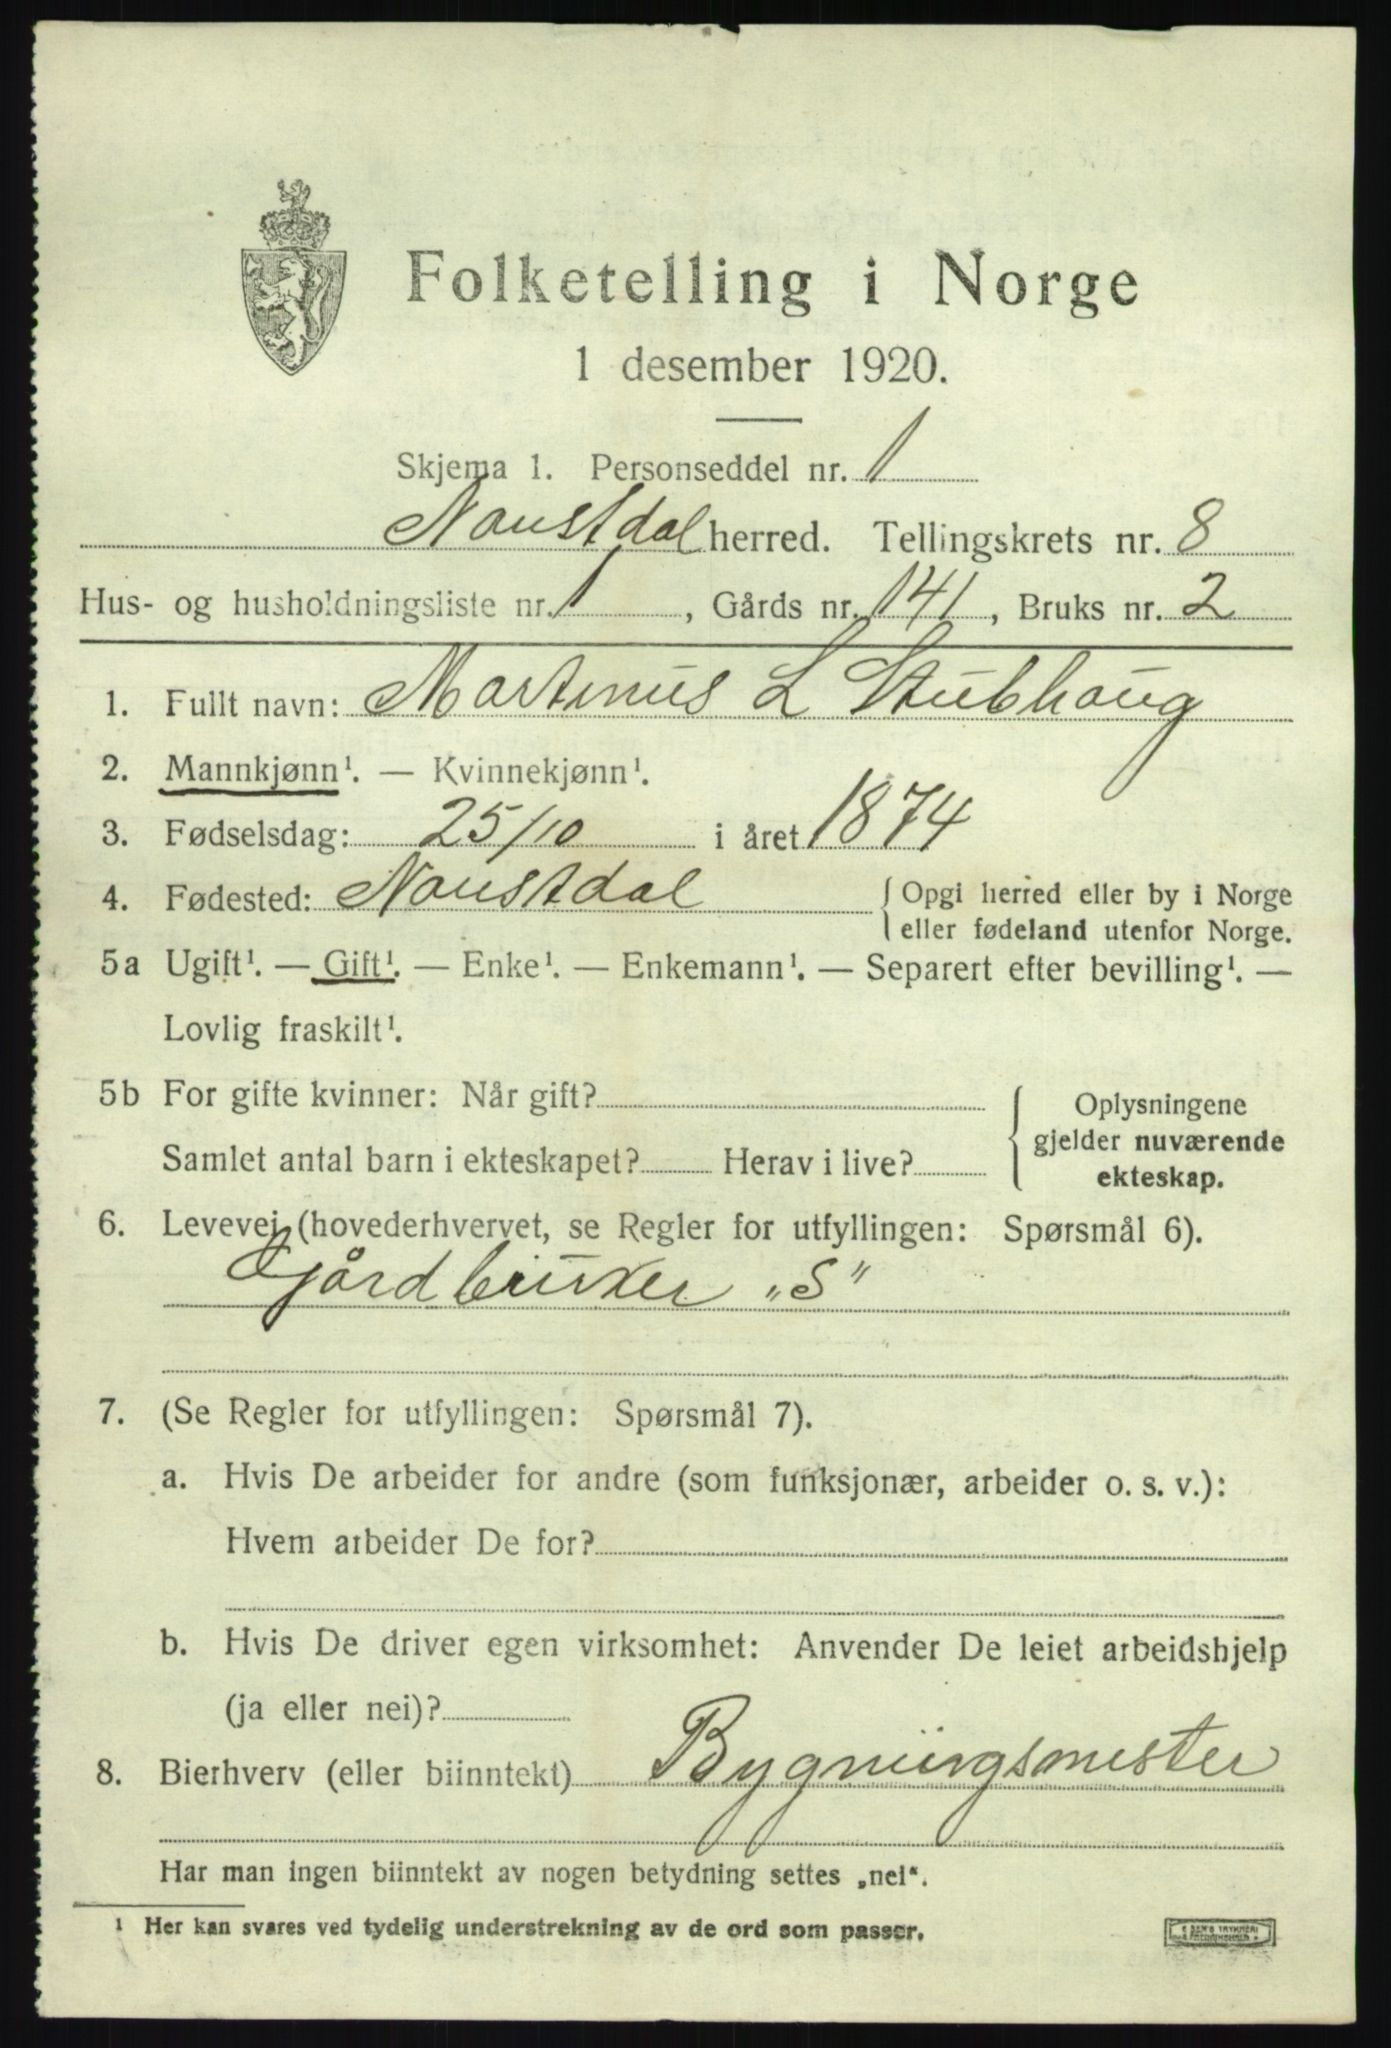 Folketelling i Norge
1 desember 1920.
Skjema 1. Personseddel nr. 1
Naustdal herred. Tellingskrets nr. 8
Hus- og husholdningsliste nr. 1, Gårds nr. 141, Bruks nr. 2
1. Fullt navn: Martinus L Stubhaug
2. Mannkjønn¹. — Kvinnekjønn¹.
3. Fødselsdag: 25/10 i året 1874
4. Fødested: Naustdal { Opgi herred eller by i Norge
eller fødeland utenfor Norge.
5a Ugift¹. — Gift¹. — Enke¹. — Enkemann¹. — Separert efter bevilling¹. —
Lovlig fraskilt¹.
5b For gifte kvinner: Når gift? { Oplysningene
gjelder nuværende
Samlet antal barn i ekteskapet? Herav i live? ekteskap.
6. Levevei (hovederhvervet, se Regler for utfyllingen: Spørsmål 6).
Gjårdbruker „S"
7. (Se Regler for utfyllingen: Spørsmål 7).
a. Hvis De arbeider for andre (som funksjonær, arbeider o. s. v.):
Hvem arbeider De for?
b. Hvis De driver egen virksomhet: Anvender De leiet arbeidshjelp
(ja eller nei)?
8. Bierhverv (eller biinntekt) Bygningsmester
Har man ingen biinntekt av nogen betydning settes „nei".
¹ Her kan svares ved tydelig understrekning av de ord som passer.